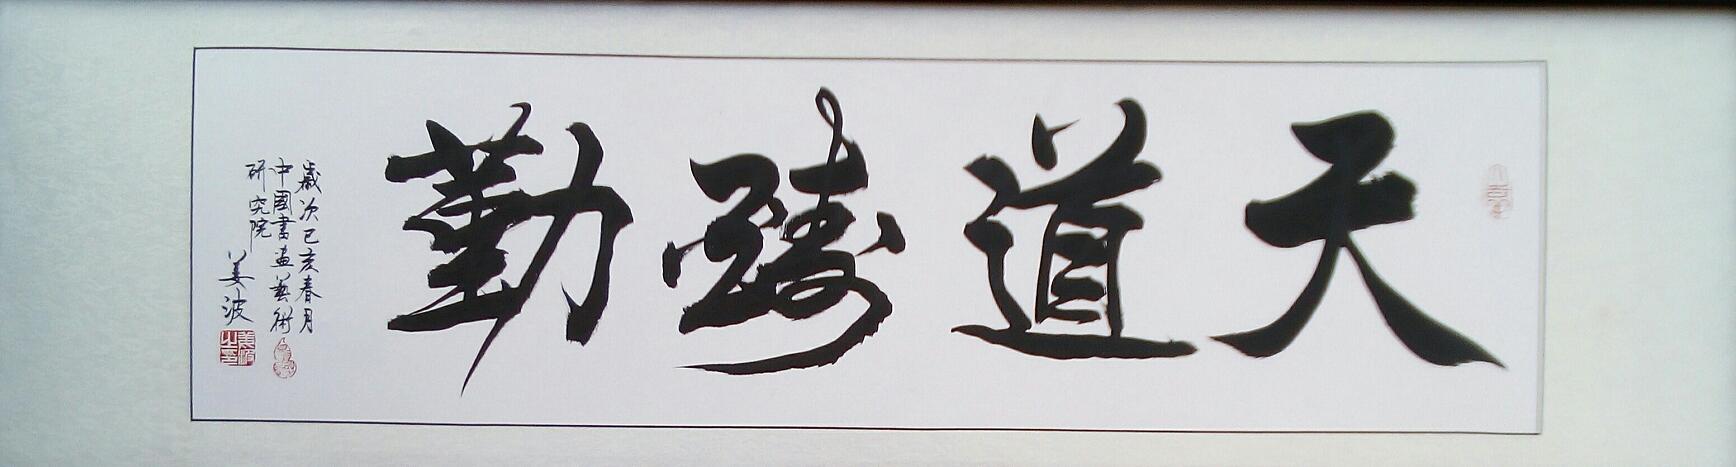 天道醻勤
歲次己亥春月
中國書畫藝術
研究院 姜波
姜波之印